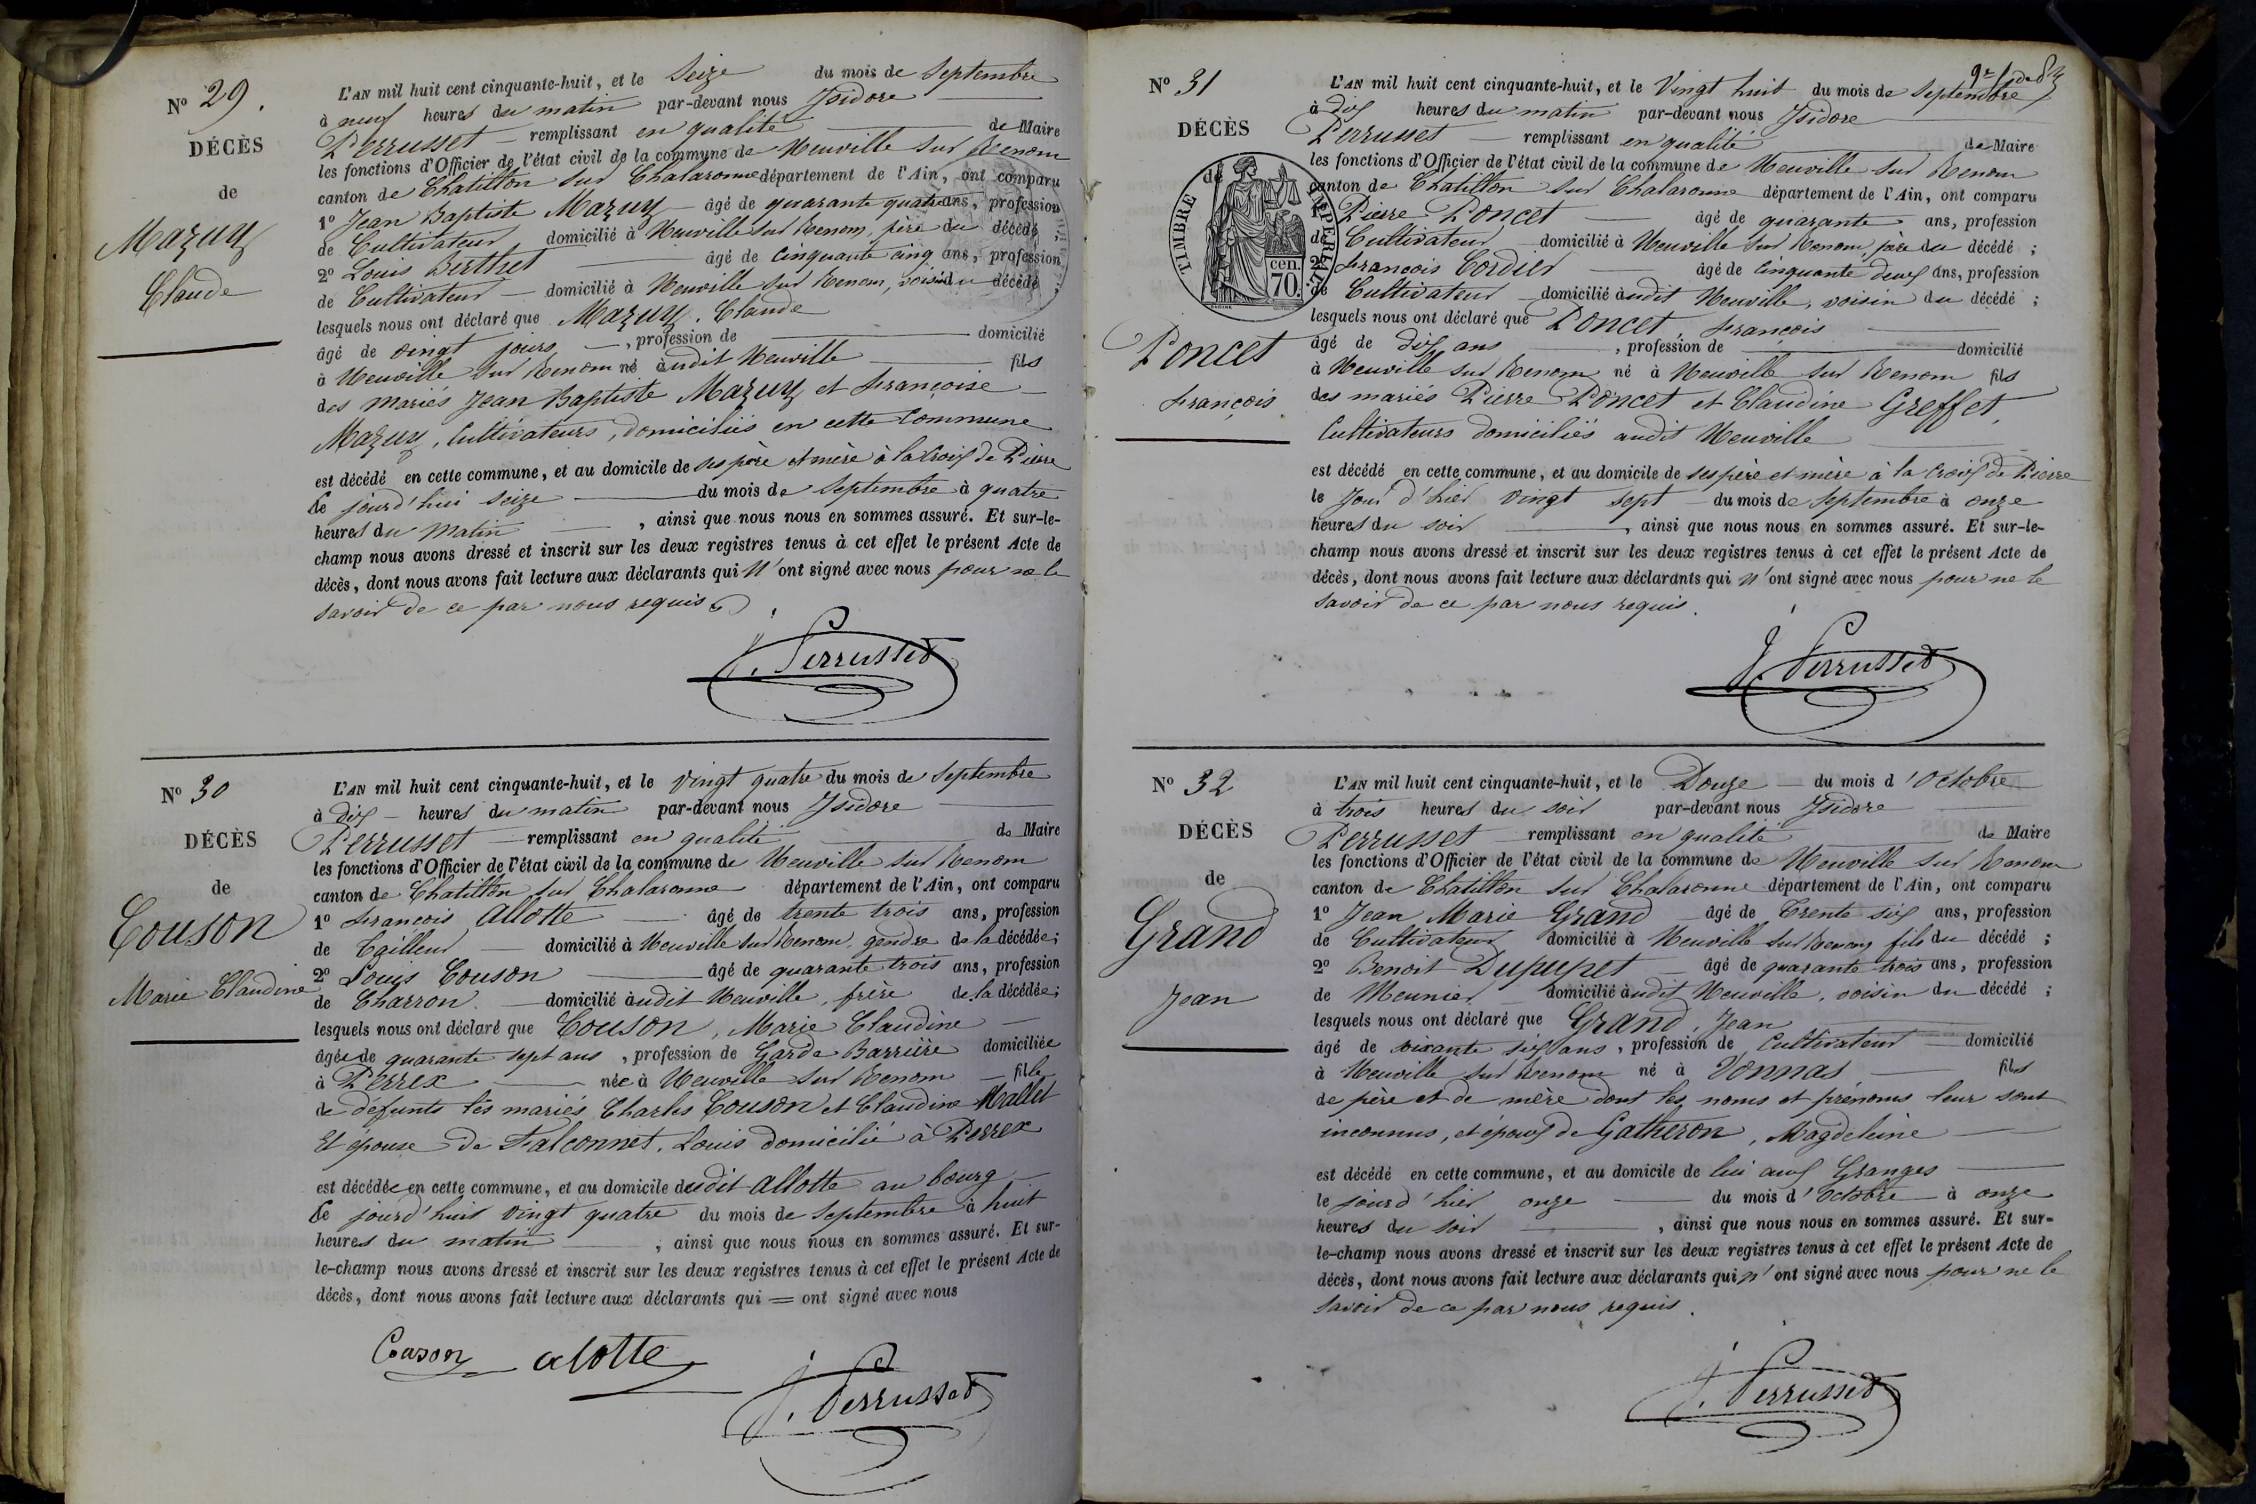 N° 29.
DÉCÈS
de
Mazuy
Claude
L'AN mil huit cent cinquante-huit, et le Seize du mois de Septembre
à neuf heures du matin par-devant nous Isidore
Perrusset remplissant en qualité de Maire
les fonctions d'Officier de l'état civil de la commune de Neuville sur Renom
canton de Chatillon sur Chalaronne département de l'Ain, ont comparu
1° Jean Baptiste Mazuy âgé de quarante quatre ans, profession
de Cultivateur domicilié à Neuville sur Renom, père du décédé ;
2° Louis Berthet âgé de Cinquante cinq ans, profession
de Cultivateur domicilié à Neuville sur Renom, voisin du décédé ;
lesquels nous ont déclaré que Mazuy, Claude
âgé de vingt jours, profession de domicilié
à Neuville sur Renom né audit Neuville fils
des mariés Jean Baptiste Mazuy et Françoise
Mazuy, Cultivateurs, domiciliés en cette commune
est décédé en cette commune, et au domicile de ses père et mère à la Croix de Pierre
Ce jourd'hui seize du mois de Septembre à quatre
heures du matin, ainsi que nous nous en sommes assuré. Et sur-le-
champ nous avons dressé et inscrit sur les deux registres tenus à cet effet le présent Acte de
décès, dont nous avons fait lecture aux déclarants qui n'ont signé avec nous pour ne le
savoir de ce par nous requis
J. Perrusset
N° 30
DÉCÈS
de
Couson
Marie Claudine
L'AN mil huit cent cinquante-huit, et le vingt quatre du mois de Septembre
à dix heures du matin par-devant nous Isidore
Perrusset remplissant en qualité de Maire
les fonctions d'Officier de l'état civil de la commune de Neuville sur Renom
canton de Chatillon sur Chalaronne département de l'Ain, ont comparu
1° François Allotte âgé de trente trois ans, profession
de Tailleur domicilié à Neuville sur Renom, gendre de la décédée ;
2° Louis Couson âgé de quarante trois ans, profession
de Charron domicilié audit Neuville, frère de la décédée ;
lesquels nous ont déclaré que Couson, Marie Claudine
âgée de quarante sept ans, profession de Garde Barrière domiciliée
à Perrex née à Neuville sur Renom fille
de défunts les mariés Charles Couson et Claudine Mallet
Et épouse de Falconnet, Louis domicilié à Perrex
est décédée en cette commune, et au domicile dudit Allotte au bourg
Ce jourd'hui vingt quatre du mois de Septembre à huit
heures du matin, ainsi que nous nous en sommes assuré. Et sur-
le-champ nous avons dressé et inscrit sur les deux registres tenus à cet effet le présent Acte de
décès, dont nous avons fait lecture aux déclarants qui = ont signé avec nous
Couson alotte J. Perrusset
N° 31
DÉCÈS
de
TIMBRE IMPERIAL
70 cen.
Poncet
François
L'AN mil huit cent cinquante-huit, et le Vingt huit du mois de Septembre
à dix heures du matin par-devant nous Isidore
Perrusset remplissant en qualité de Maire
les fonctions d'Officier de l'état civil de la commune de Neuville sur Renom
canton de Chatillon sur Chalaronne département de l'Ain, ont comparu
Pierre Poncet âgé de quarante ans, profession
de Cultivateur domicilié à Neuville sur Renom, père du décédé ;
2° François Cordier âgé de Cinquante deux ans, profession
de Cultivateur domicilié audit Neuville, voisin du décédé ;
lesquels nous ont déclaré que Poncet, François
âgé de dix ans, profession de domicilié
à Neuville sur Renom né à Neuville sur Renom fils
des mariés Pierre Poncet et Claudine Greffet,
Cultivateurs domiciliés audit Neuville
est décédé en cette commune, et au domicile de ses père et mère à la Croix de Pierre
le Jour d'hier vingt sept du mois de Septembre à onze
heures du soir, ainsi que nous nous en sommes assuré. Et sur-le-
champ nous avons dressé et inscrit sur les deux registres tenus à cet effet le présent Acte de
décès, dont nous avons fait lecture aux déclarants qui n'ont signé avec nous pour ne le
savoir de ce par nous requis.
J. Perrusset
N° 32
DÉCÈS
de
Grand
Jean
L'AN mil huit cent cinquante-huit, et le Douze du mois d'Octobre
à trois heures du soir par-devant nous Isidore
Perrusset remplissant en qualité de Maire
les fonctions d'Officier de l'état civil de la commune de Neuville sur Renom
canton de Chatillon sur Chalaronne département de l'Ain, ont comparu
1° Jean Marie Grand âgé de Trente six ans, profession
de Cultivateur domicilié à Neuville sur Renom, fils du décédé ;
2° Benoit Dupupet âgé de quarante trois ans, profession
de Meunier domicilié audit Neuville, voisin du décédé ;
lesquels nous ont déclaré que Grand, Jean
âgé de soixante six ans, profession de Cultivateur domicilié
à Neuville sur Renom né à Vonnas fils
de père et de mère dont les noms et prénoms leur sont
inconnus, et époux de Gatheron, Magdeleine
est décédé en cette commune, et au domicile de lui aux Granges
le jour d'hier onze du mois d'Octobre à onze
heures du soir, ainsi que nous nous en sommes assuré. Et sur-
le-champ nous avons dressé et inscrit sur les deux registres tenus à cet effet le présent Acte de
décès, dont nous avons fait lecture aux déclarants qui n'ont signé avec nous pour ne le
savoir de ce par nous requis.
J. Perrusset